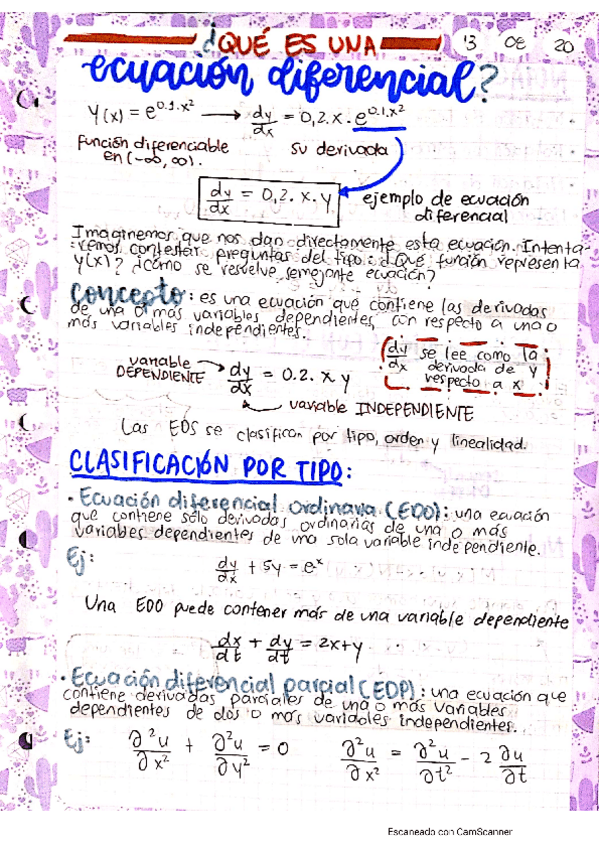 ¿QUÉ ES UNA 13 08 20
ecuación diferencial?
y(x) = e^0.1.x² → dy/dx = 0,2.x.e^0.1.x²
Función diferenciable su derivada
en (-∞, ∞).
dy/dx = 0,2. x. y ejemplo de ecuación
diferencial
Imaginemos que nos dan directamente esta ecuación. Intenta-
remos contestar preguntas del tipo: ¿Qué función representa
y(x)? ¿cómo se resuelve semejante ecuación?
Concepto: es una ecuación que contiene las derivadas
de una o más variables dependientes, con respecto a una o
más variables independientes.
variable
DEPENDIENTE → dy/dx = 0.2. x y
dy/dx se lee como la
derivada de y
respecto a x
variable INDEPENDIENTE
Las EDS se clasifican por tipo, orden y linealidad.
CLASIFICACIÓN POR TIPO:
· Ecuación diferencial ordinaria (EDO): una ecuación
que contiene sólo derivadas ordinarias de una o más
variables dependientes de una sola variable independiente.
Ej:
dy/dx + 5y = e^x
Una EDO puede contener más de una variable dependiente
dx/dt + dy/dt = 2x+y
· Ecuación diferencial parcial (EDP): una ecuación que
contiene derivadas parciales de una o más variables
dependientes de dos o más variables independientes.
Ej: ∂²u/∂x² + ∂²u/∂y² = 0 ∂²u/∂x² = ∂²u/∂t² - 2 ∂u/∂t
Escaneado con CamScanner